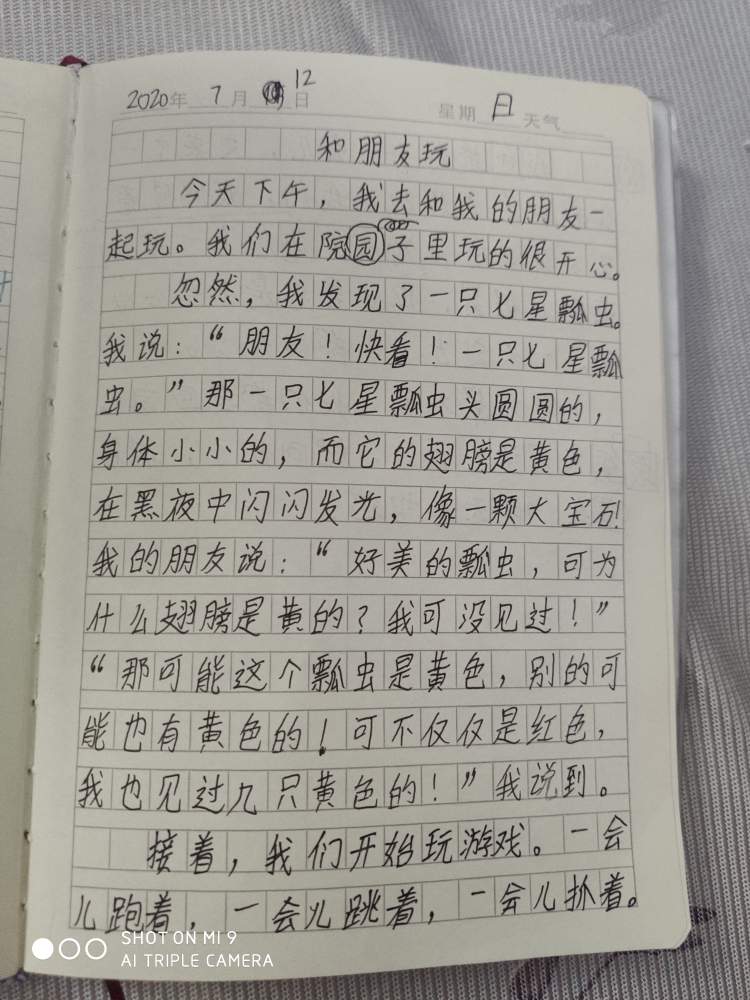 2020年 7月 12日 星期 日 天气
和朋友玩
今天下午，我去和我的朋友一
起玩。我们在院园子里玩的很开心。
忽然，我发现了一只七星瓢虫。
我说：“朋友！快看！一只七星瓢
虫。”那一只七星瓢虫头圆圆的，
身体小小的，而它的翅膀是黄色，
在黑夜中闪闪发光，像一颗大宝石!
我的朋友说：“好美的瓢虫，可为
什么翅膀是黄的？我可没见过！”
“那可能这个瓢虫是黄色，别的可
能也有黄色的！可不仅仅是红色，
我也见过几只黄色的！”我说到。
接着，我们开始玩游戏。一会
儿跑着，一会儿跳着，一会儿抓着。
SHOT ON MI 9
AI TRIPLE CAMERA